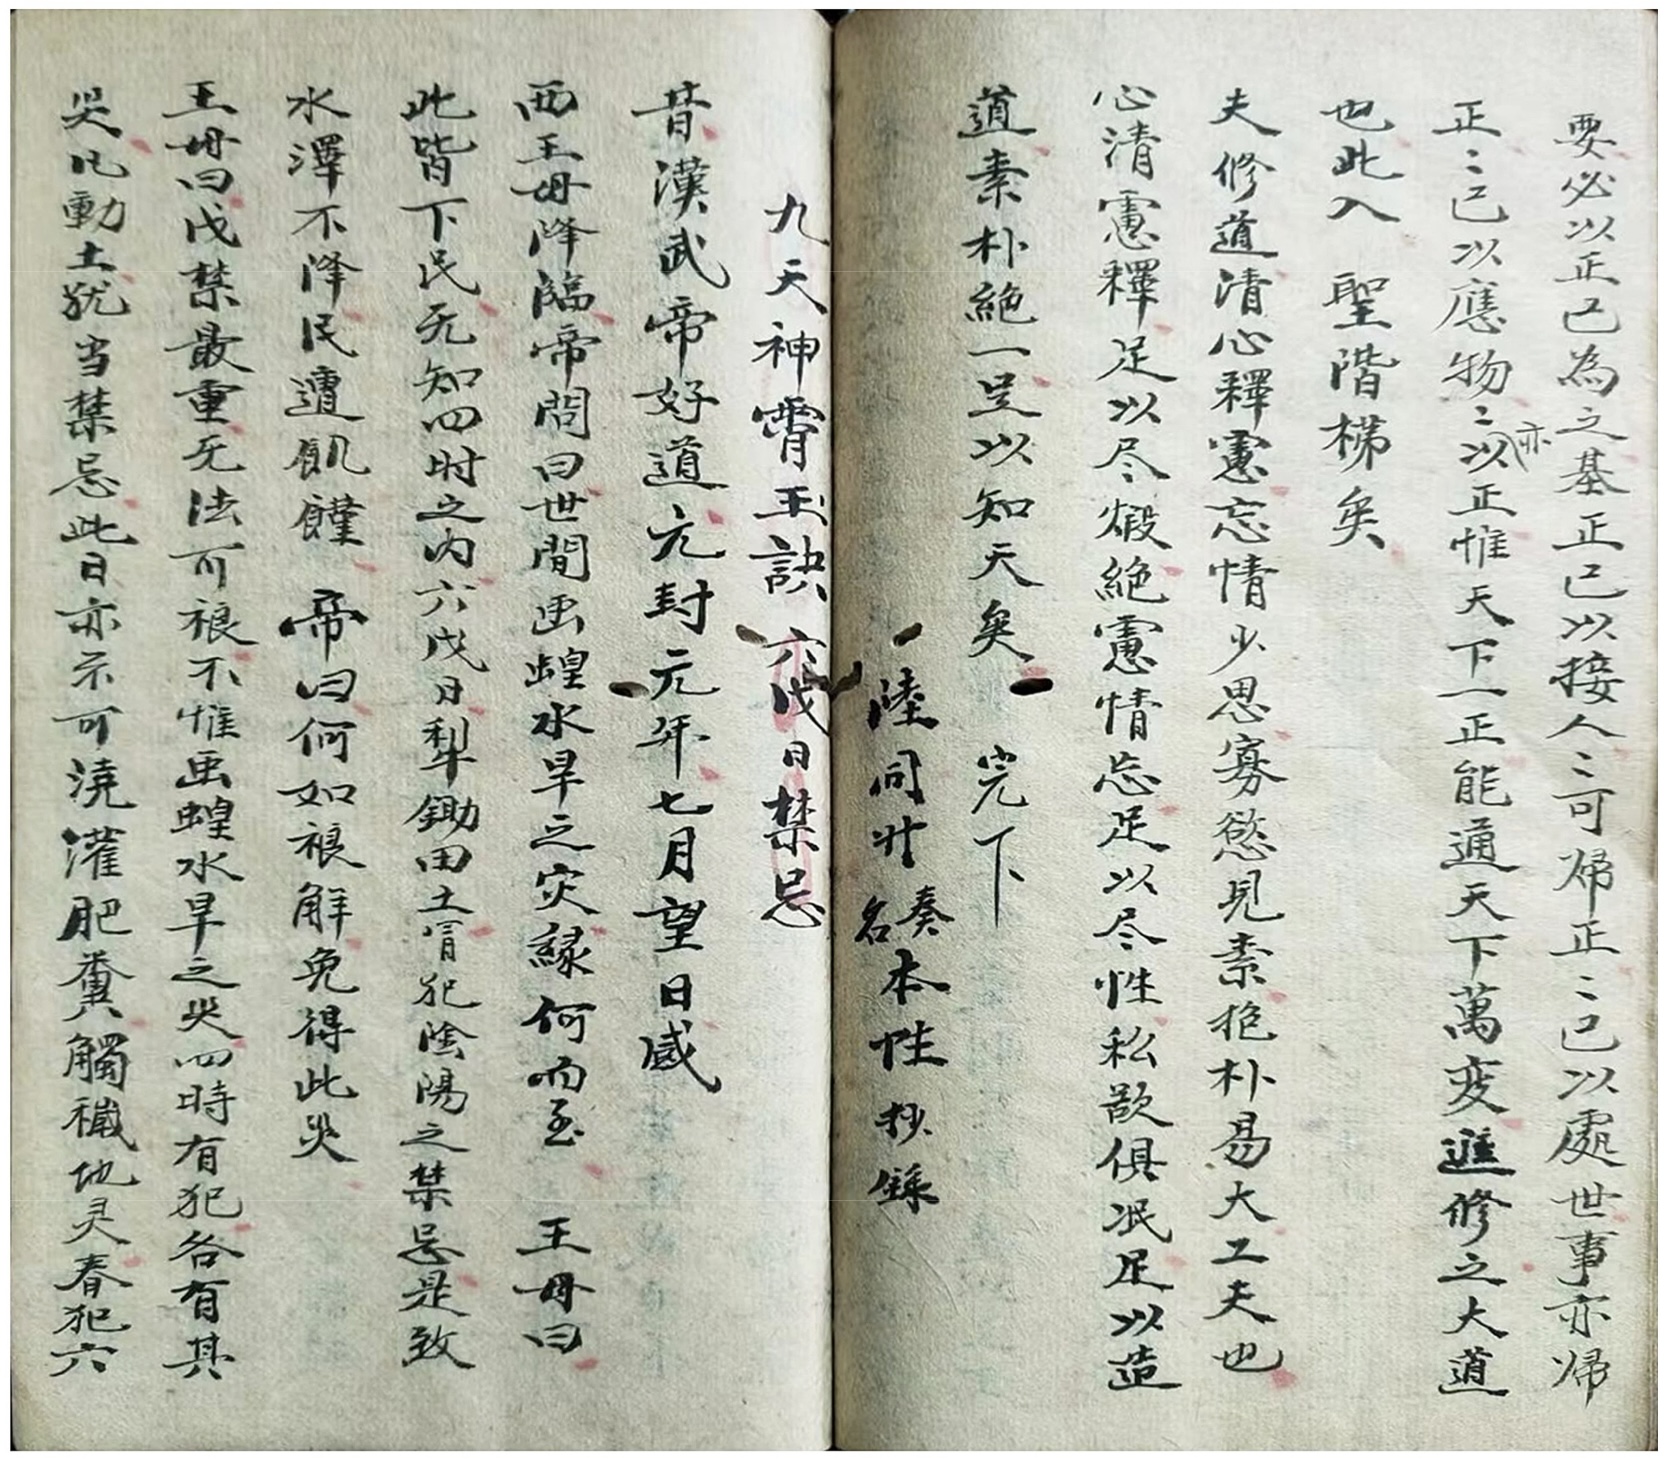 要必以正己為之基正己以接人〻可㱕正〻己以處世事亦㱕
正〻己以應物〻亦以正惟天下一正能通天下萬变進修之大道
也此入　聖階梯矣
夫修道清心釋慮忘情少思寡慾見素抱朴易大工夫也
心清慮釋足以尽煅絶慮情忘足以尽性私欲俱泯足以造
道素朴絶一足以知天矣　完下
陸同廾奏名本性抄錄
九天神霄玉訣　六戊日禁忌
昔漢武帝好道元封元年七月望日感
西王母降臨帝問曰世間虫蝗水旱之灾緣何而至　王母曰
此皆下民无知四时之内六戊日犁鋤田土冒犯陰陽之禁忌是致
水澤不降民遭飢饉　帝曰何如禳解免得此災
王母曰戊禁最重无法可禳不惟虫蝗水旱之災四時有犯各有其
災凡動土犹当禁忌此日亦不可澆灌肥糞觸穢地灵春犯六